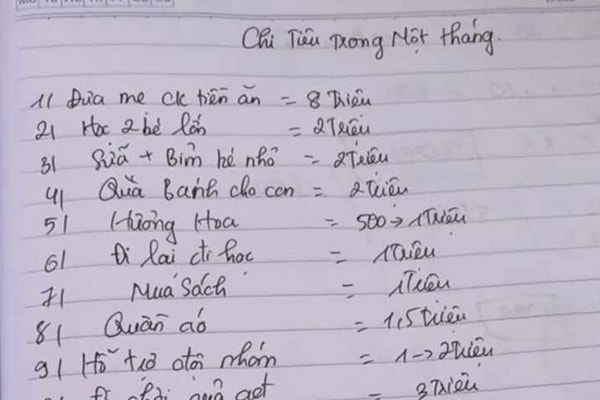 Chi Tiêu Trong Một tháng.
1/ Đưa mẹ ck tiền ăn = 8 Triệu
2/ Học 2 bé lớn = 2 Triệu
3/ Sữa + Bỉm bé nhỏ = 2 Triệu
4/ Quà Bánh cho con = 2 Triệu
5/ Hương Hoa = 500 → 1 Triệu
6/ Đi lại đi học = 1 Triệu
7/ Mua Sách = 1 Triệu
8/ Quần áo = 1,5 triệu
9/ Hỗ trợ nhóm = 1 → 2 Triệu
Đi = 3 Triệu